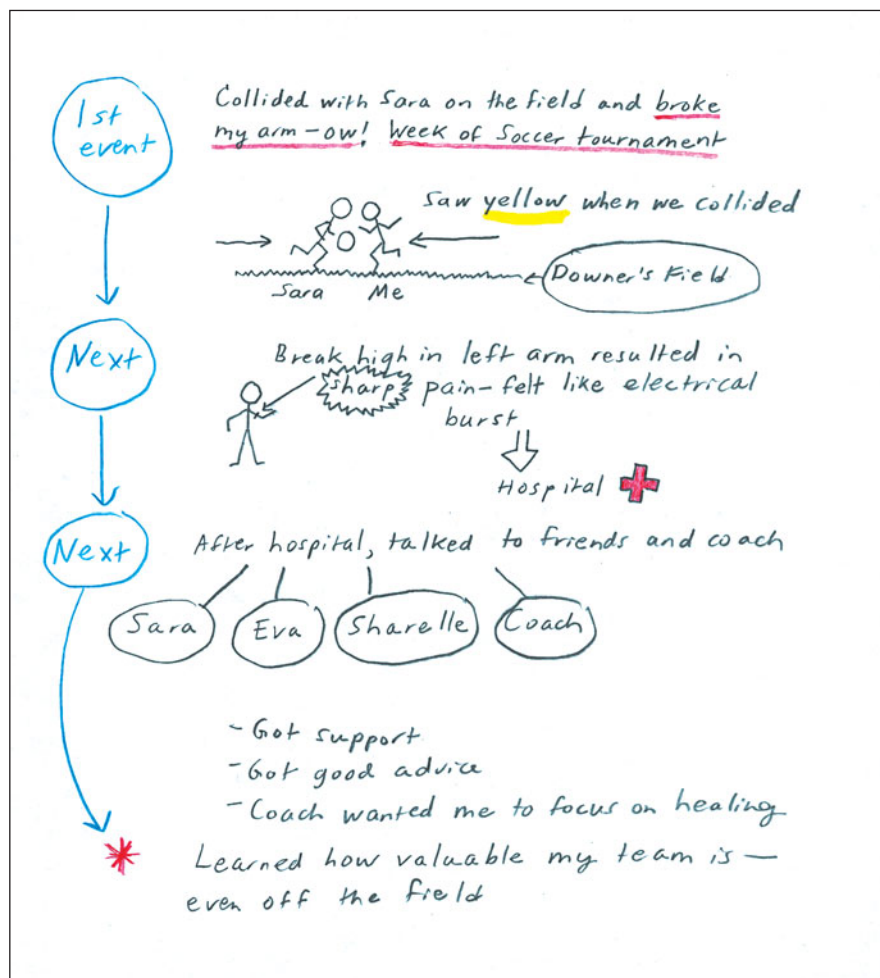 1st
event
Collided with Sara on the field and broke
my arm - ow! Week of Soccer tournament
Saw yellow when we collided
Downer's Field
Sara Me
Next
Break high in left arm resulted in
sharp pain - felt like electrical
burst
Hospital
Next
After hospital, talked to friends and coach
Sara Eva Sharelle Coach
- Got support
- Got good advice
- Coach wanted me to focus on healing
* Learned how valuable my team is —
even off the field